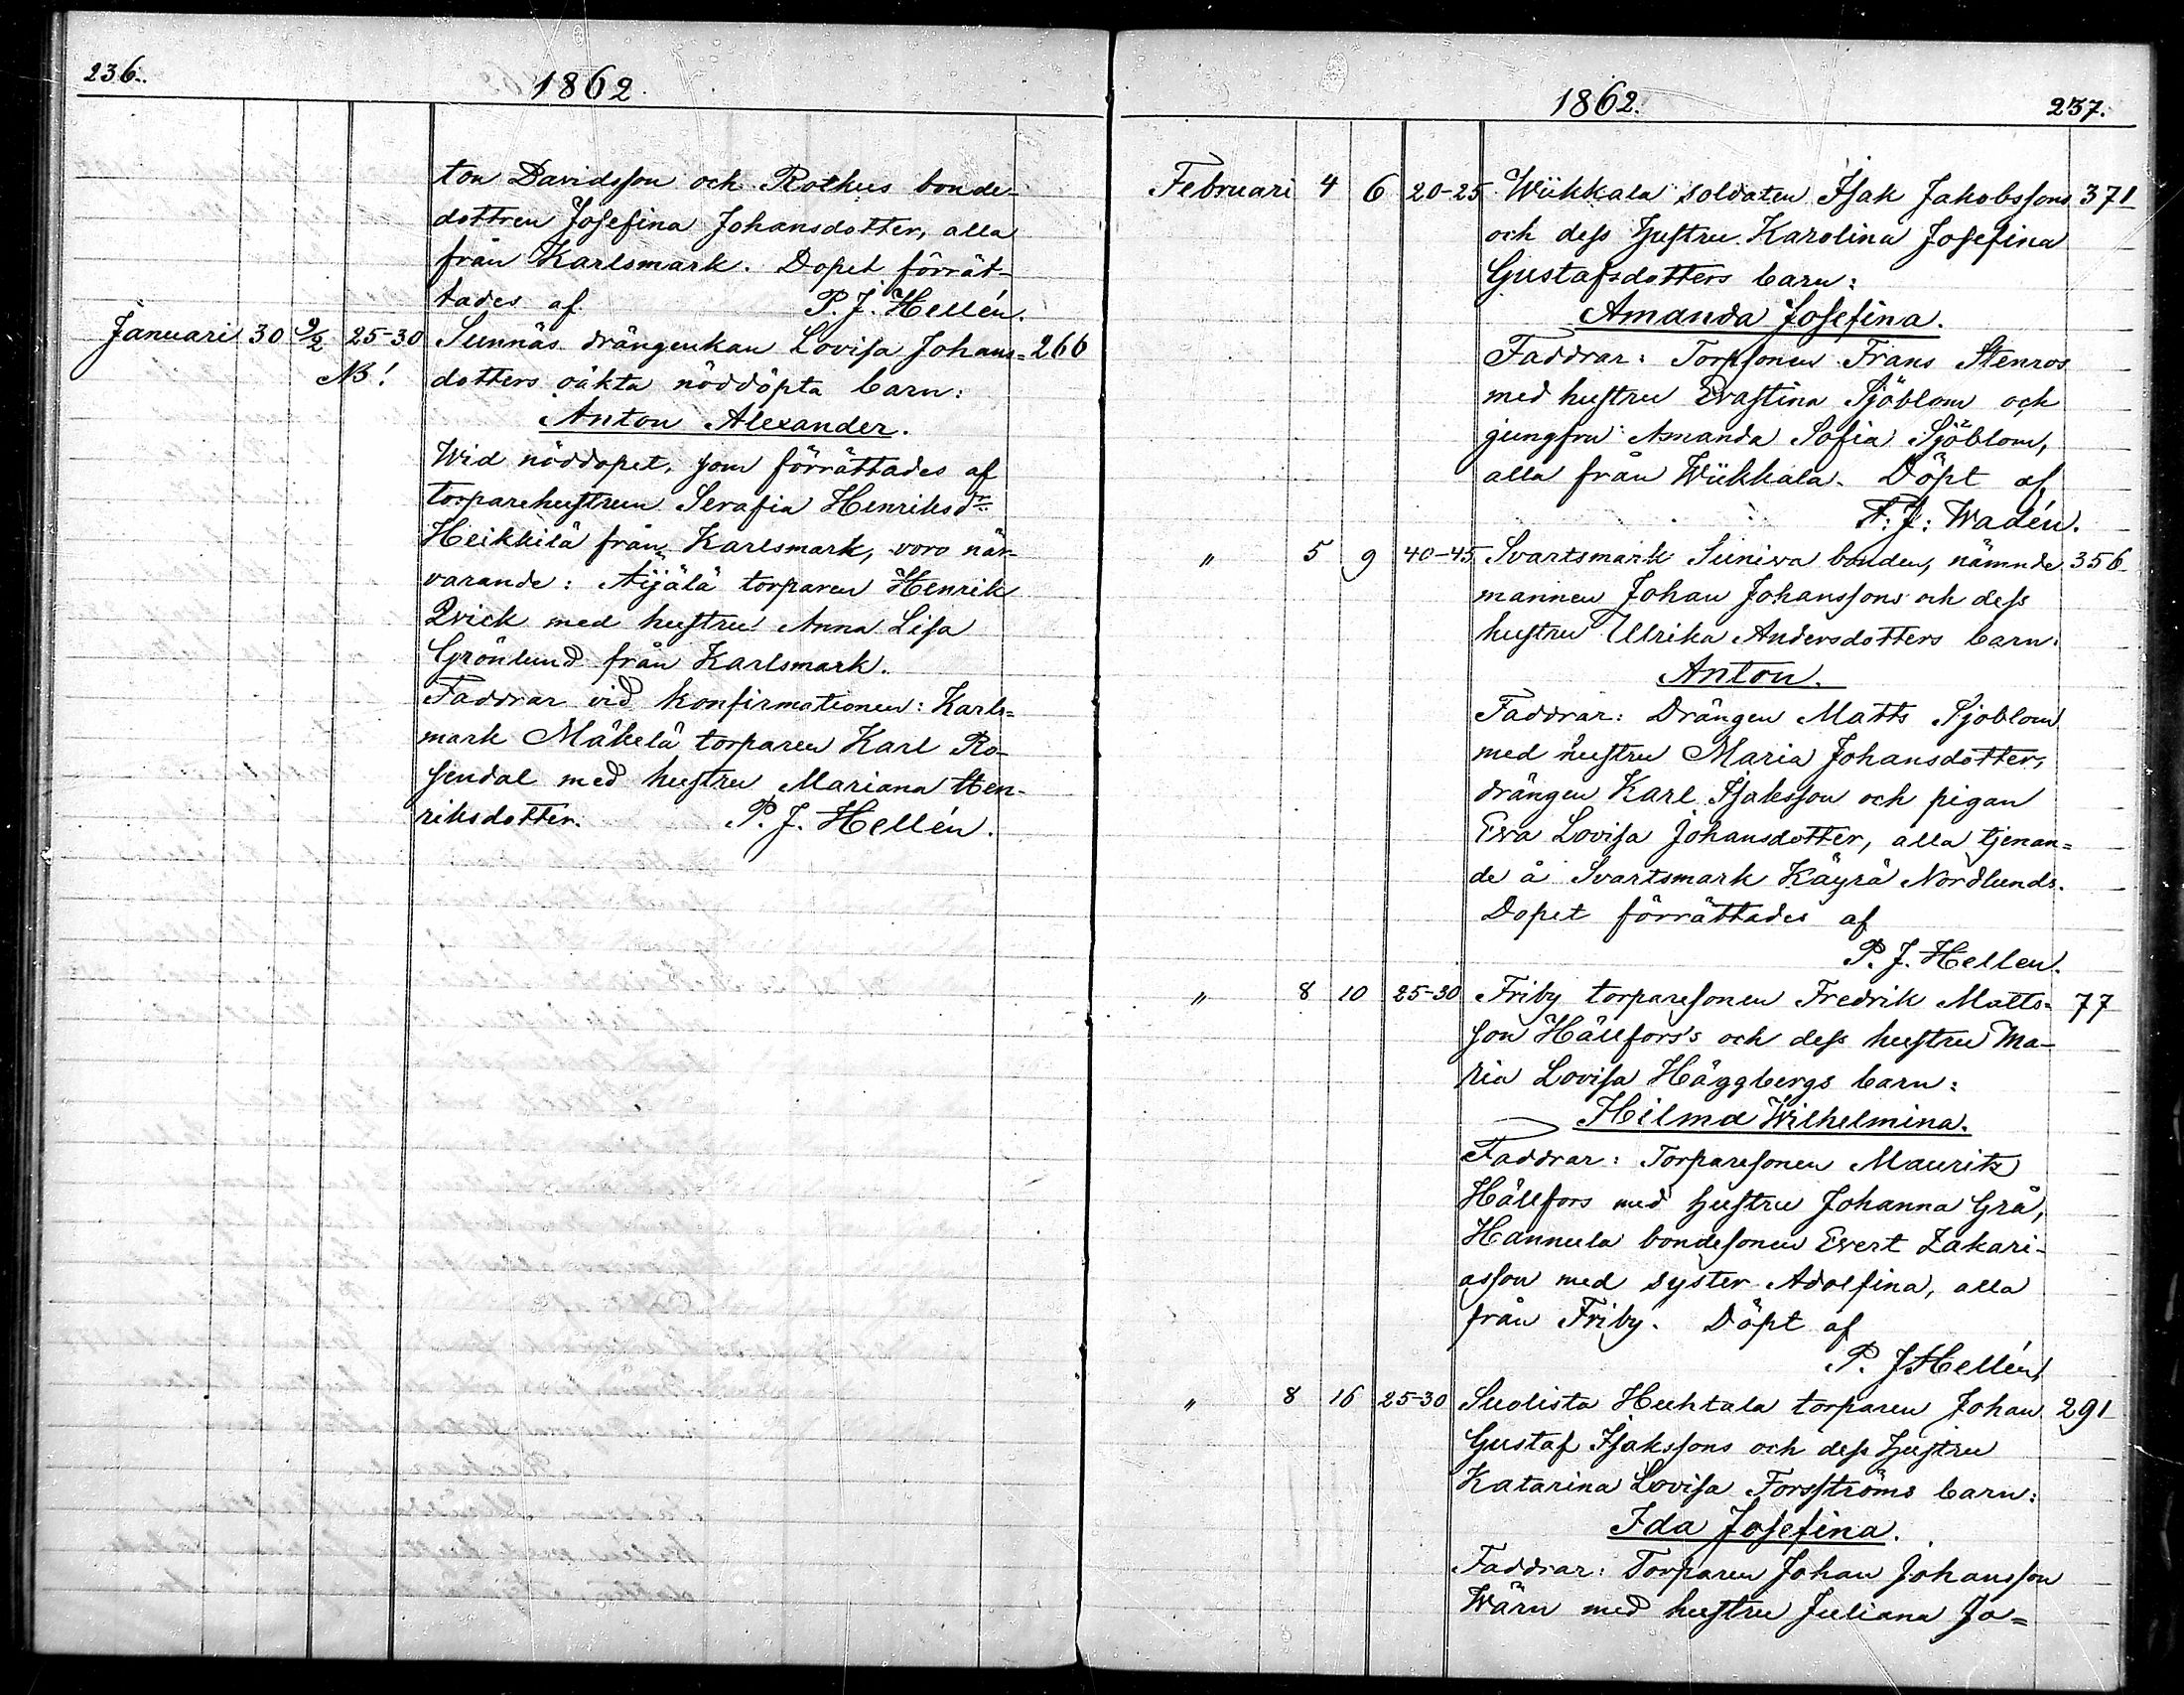 236.
1862.
ton Davidsson och Rothus bonde-
dottren Josefina Johansdotter, alla
från Karlsmark. Dopet förrät-
tades af P. J. Hellén.
Januari 30 9/2 25-30 Sunnäs drängenkan Lovisa Johans= 266
NB! dotters oäkta nöddöpta barn:
Anton Alexander.
Wid nöddopet, som förrättades af
torparehustrun Serafia Henriksdr
Heikkilä från Karlsmark, voro när-
varande: Äijälä torparen Henrik
Qvick med hustru Anna Lisa
Grönlund från Karlsmark.
Faddrar vid konfirmationen: Karls=
mark Mäkelä torparen Karl Ro-
sendal med hustru Mariana Hen-
riksdotter. P. J. Hellén.
1862.
237.
Februari 4 6 20-25 Wiikkala soldaten Isak Jakobssons 371
och dess hustru Karolina Josefina
Gustafsdotters barn:
Amanda Josefina.
Faddrar: Torpsonen Frans Stenros
med hustru Evastina Sjöblom och
jungfru Amanda Sofia Sjöblom,
alla från Wiikkala. Döpt af
F: J: Wadén.
" 5 9 40-45 Svartsmark Suniva bonden, nämnde 356
mannen Johan Johanssons och dess
hustru Ulrika Andersdotters barn:
Anton.
Faddrar: Drängen Matts Sjöblom
med hustru Maria Johansdotter,
drängen Karl Isaksson och pigan
Eva Lovisa Johansdotter, alla tjenan=
de å Svartsmark Käyrä Nordlunds.
Dopet förrättades af
P. J. Hellen.
" 8 10 25-30 Friby torparesonen Fredrik Matts= 77
son Hällfors's och dess hustru Ma-
ria Lovisa Häggbergs barn:
Hilma Wilhelmina.
Faddrar: Torparesonen Mauritz
Hällfors med hustru Johanna Grå,
Hannula bondesonen Evert Zakari-
asson med syster Adolfina, alla
från Friby. Döpt af
P. J. Hellén
" 8 16 25-30 Suolista Huhtala torparen Johan 291
Gustaf Isakssons och dess hustru
Katarina Lovisa Forsströms barn:
Ida Josefina.
Faddrar: Torparen Johan Johansson
Wärn med hustru Juliana Jo=